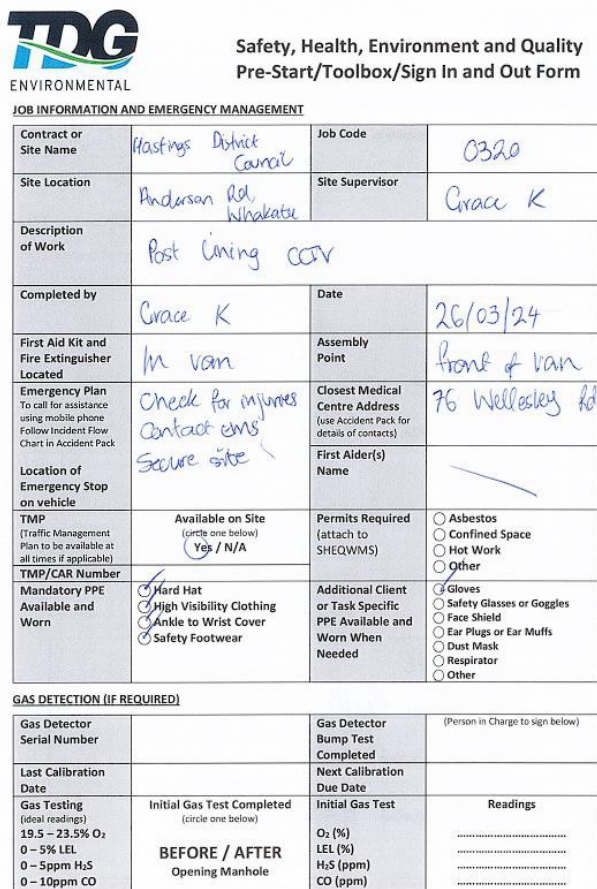 TDG
ENVIRONMENTAL
Safety, Health, Environment and Quality
Pre-Start/Toolbox/Sign In and Out Form
JOB INFORMATION AND EMERGENCY MANAGEMENT
Contract or
Site Name
Hastings District
Council
Job Code
0320
Site Location
Anderson Rd,
Whakatu
Site Supervisor
Grace K
Description
of Work
Post Lining CCTV
Completed by
Grace K
Date
26/03/24
First Aid Kit and
Fire Extinguisher
Located
In van
Assembly
Point
front of van
Emergency Plan
To call for assistance
using mobile phone
Follow Incident Flow
Chart in Accident Pack
Location of
Emergency Stop
on vehicle
Check for injuries
Contact ems
Secure site
Closest Medical
Centre Address
(use Accident Pack for
details of contacts)
76 Wellesley Rd
First Aider(s)
Name
TMP
(Traffic Management
Plan to be available at
all times if applicable)
Available on Site
(circle one below)
Yes / N/A
Permits Required
(attach to
SHEQWMS)
Asbestos
Confined Space
Hot Work
Other
TMP/CAR Number
Mandatory PPE
Available and
Worn
Hard Hat
High Visibility Clothing
Ankle to Wrist Cover
Safety Footwear
Additional Client
or Task Specific
PPE Available and
Worn When
Needed
Gloves
Safety Glasses or Goggles
Face Shield
Ear Plugs or Ear Muffs
Dust Mask
Respirator
Other
GAS DETECTION (IF REQUIRED)
Gas Detector
Serial Number
Gas Detector
Bump Test
Completed
(Person in Charge to sign below)
Last Calibration
Date
Next Calibration
Due Date
Gas Testing
(ideal readings)
19.5 – 23.5% O₂
0 – 5% LEL
0 – 5ppm H₂S
0 – 10ppm CO
Initial Gas Test Completed
(circle one below)
BEFORE / AFTER
Opening Manhole
Initial Gas Test
O₂ (%)
LEL (%)
H₂S (ppm)
CO (ppm)
Readings